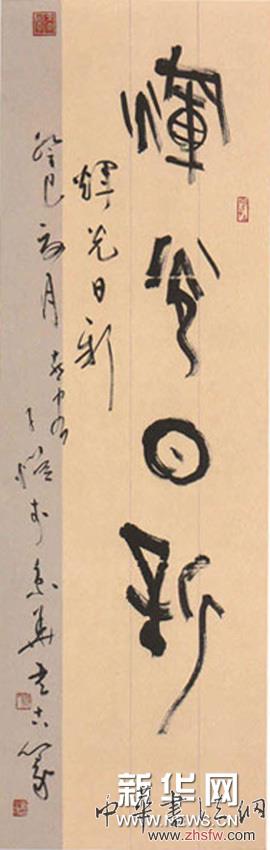 煇光日新
煇光日新
癸巳 月
京華書古篆
新华网
WWW.NEWS.CN
中華書法網
www.zhsfw.com